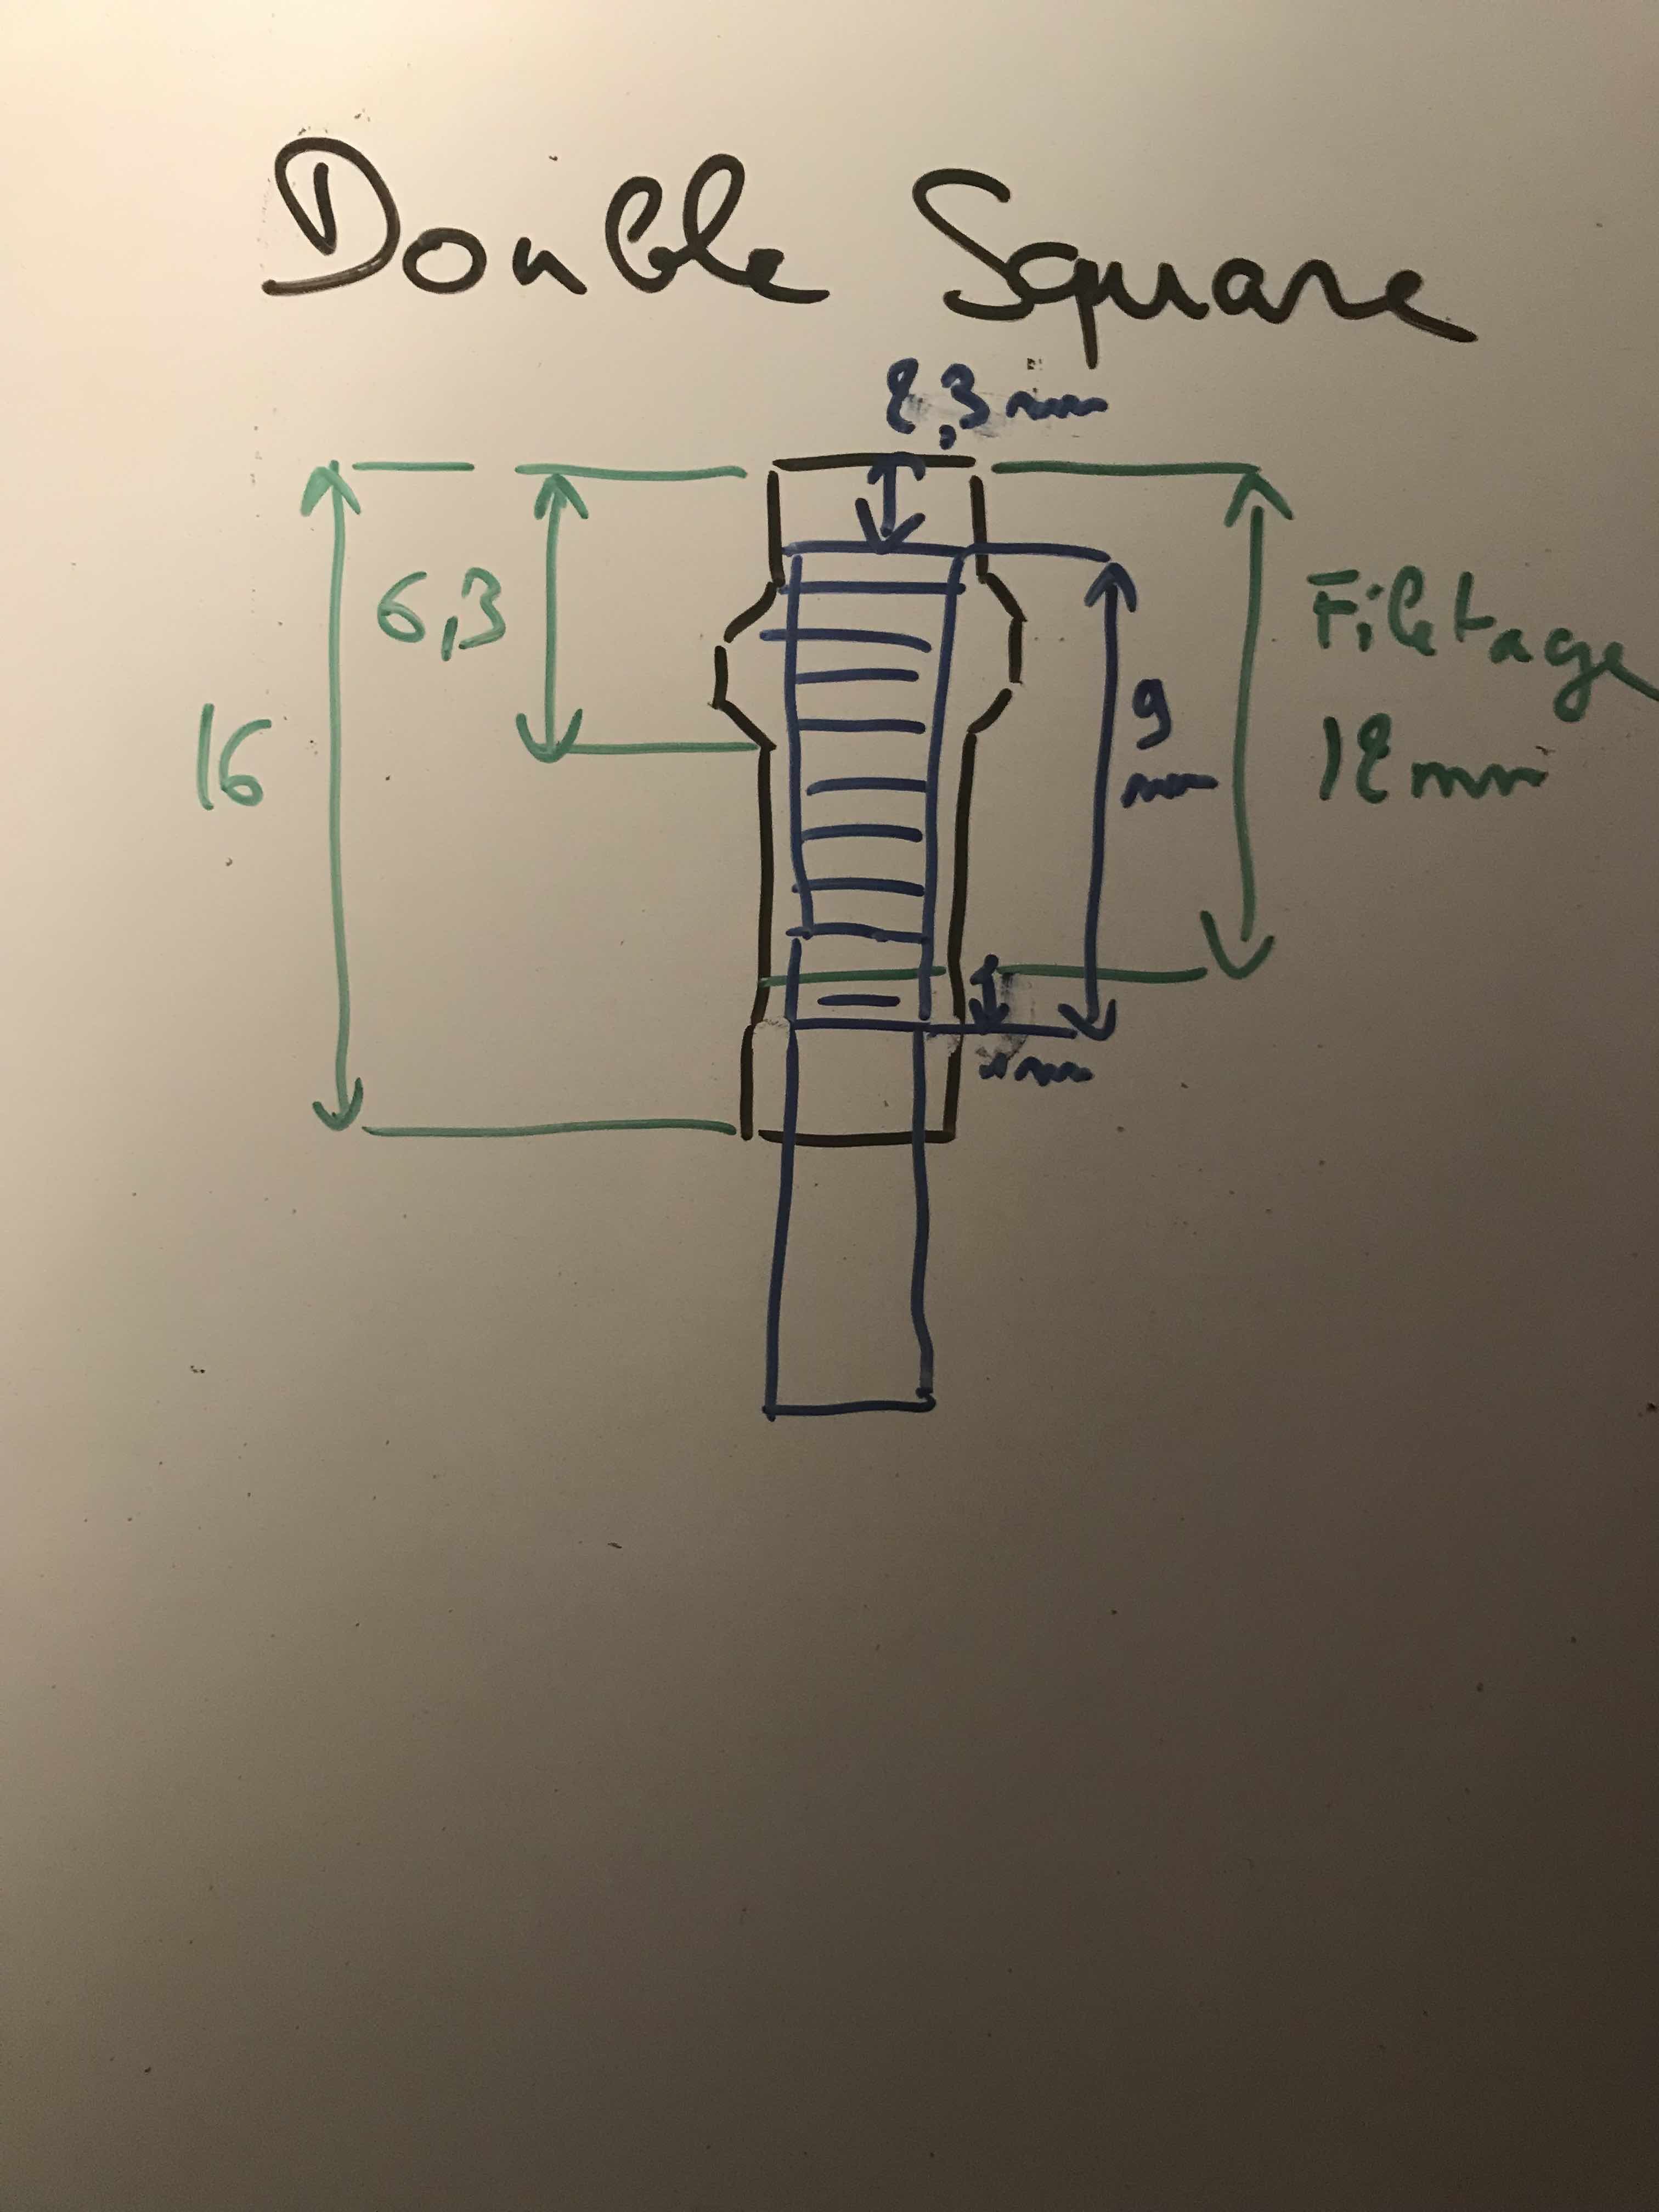 Double Square
2,3 mm
6,3
16
9
mm
Filetage
12 mm
mm